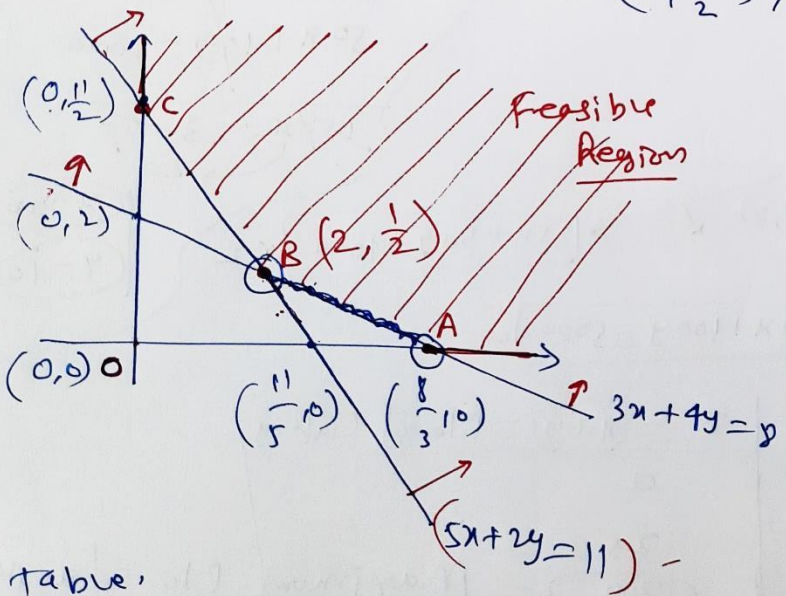 (0, 11/2) C
Feasible
Region
(0, 2)
B (2, 1/2)
A
(0,0) O
(11/5, 0) (8/3, 0)
3x+4y=8
(5x+2y=11) -
table.